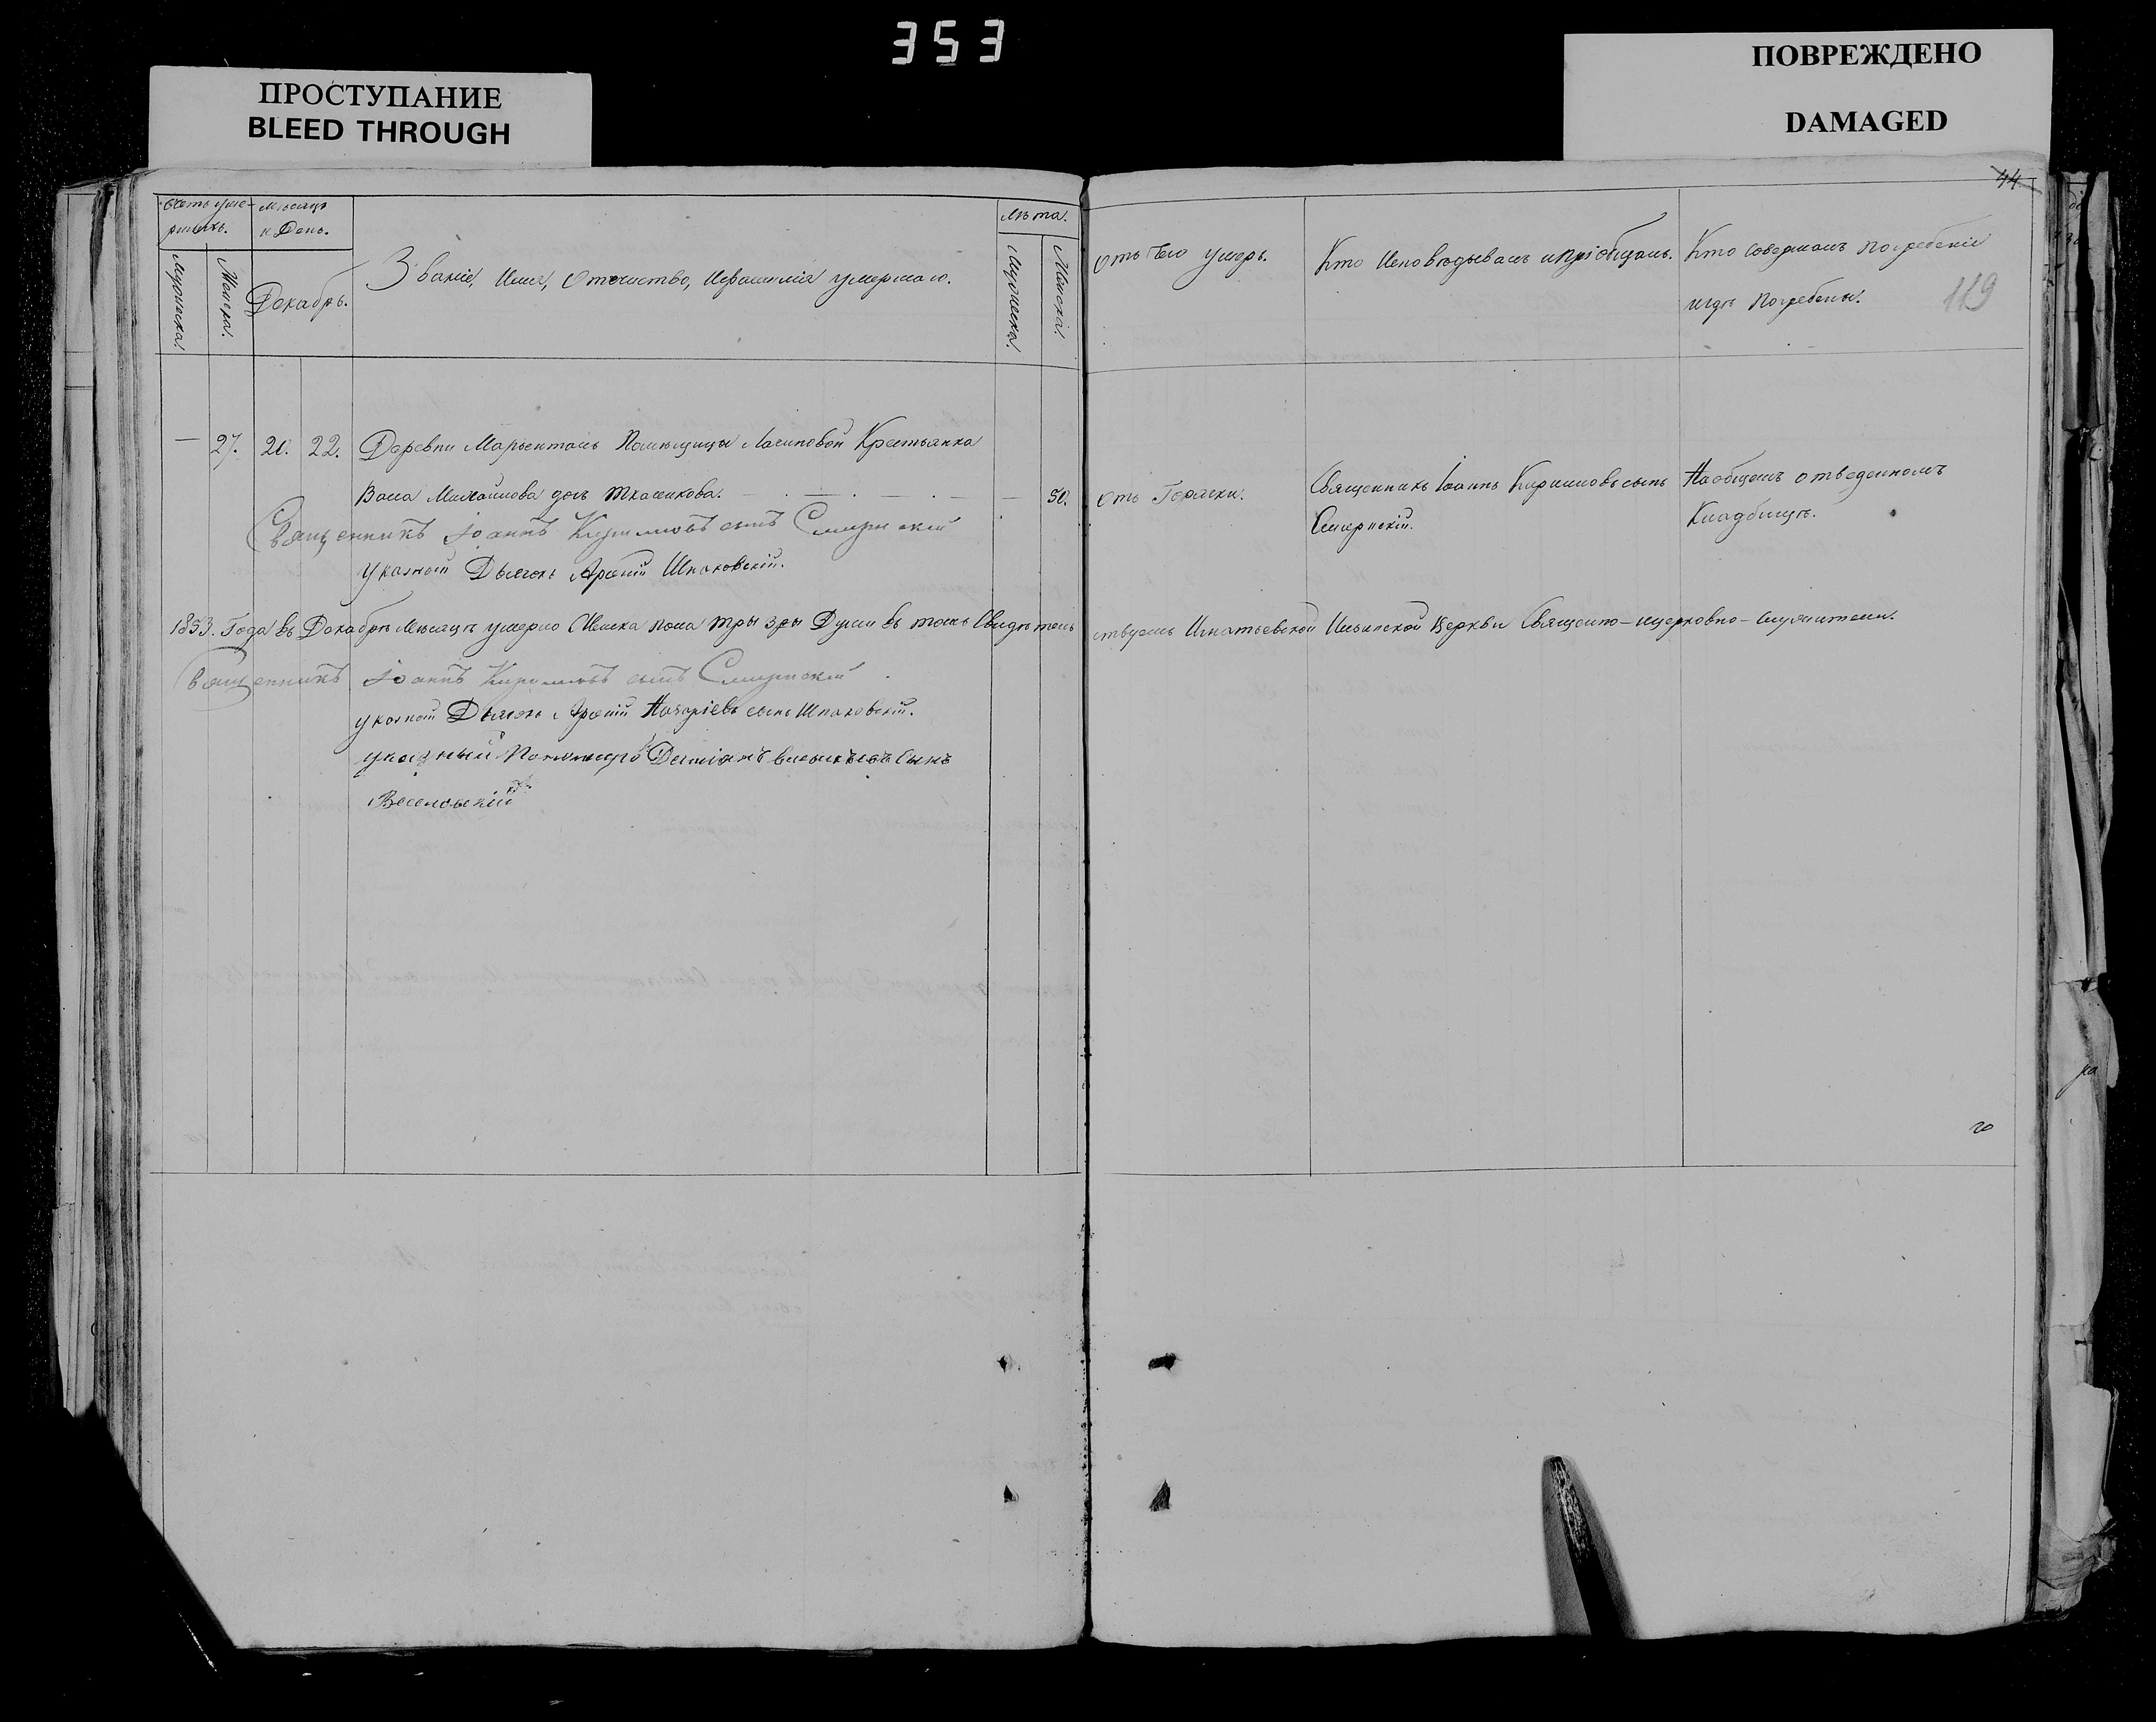 353
ПРОСТУПАНИЕ
BLEED THROUGH
ПОВРЕЖДЕНО
DAMAGED
44
119
Счетъ уме-
ршихъ.
Мѣсяцъ
и День.
Мужеска.
Женска.
Декабрь.
Званіе, Имя, Отечество, Ифамилія умершаго.
Лѣта.
Мужеска.
Женска.
Отъ чего умеръ.
Кто Исповѣдывалъ ипріобщалъ.
Кто Совершалъ погребеніе
игдѣ Погребены.
— 27. 20. 22. Деревни Марьенталь Помѣщицы Крестьянка
Михайлова дочь Ткаченкова. — 50.
Отъ Горячки.
Священникъ Іоаннъ Кирилловъ сынъ
Смирнскій.
Наобщемъ отведенномъ
Кладбищѣ.
Священникъ Іоаннъ Кирилловъ сынъ Смирнскій
указной Дьячокъ Шпаковскій.
1853. Года въ Декабрѣ Мѣсяцѣ умерло Женска пола три Души въ томъ Свидѣтель
ствуемъ Игнатьевской Ильинской Церкви Священно-ицерковно-служители.
Священникъ Іоаннъ Кирилловъ сынъ Смирнскій
указной Дьячокъ Назаріевъ сынъ Шпаковскій.
указный Пономарь сынъ
Веселовскій